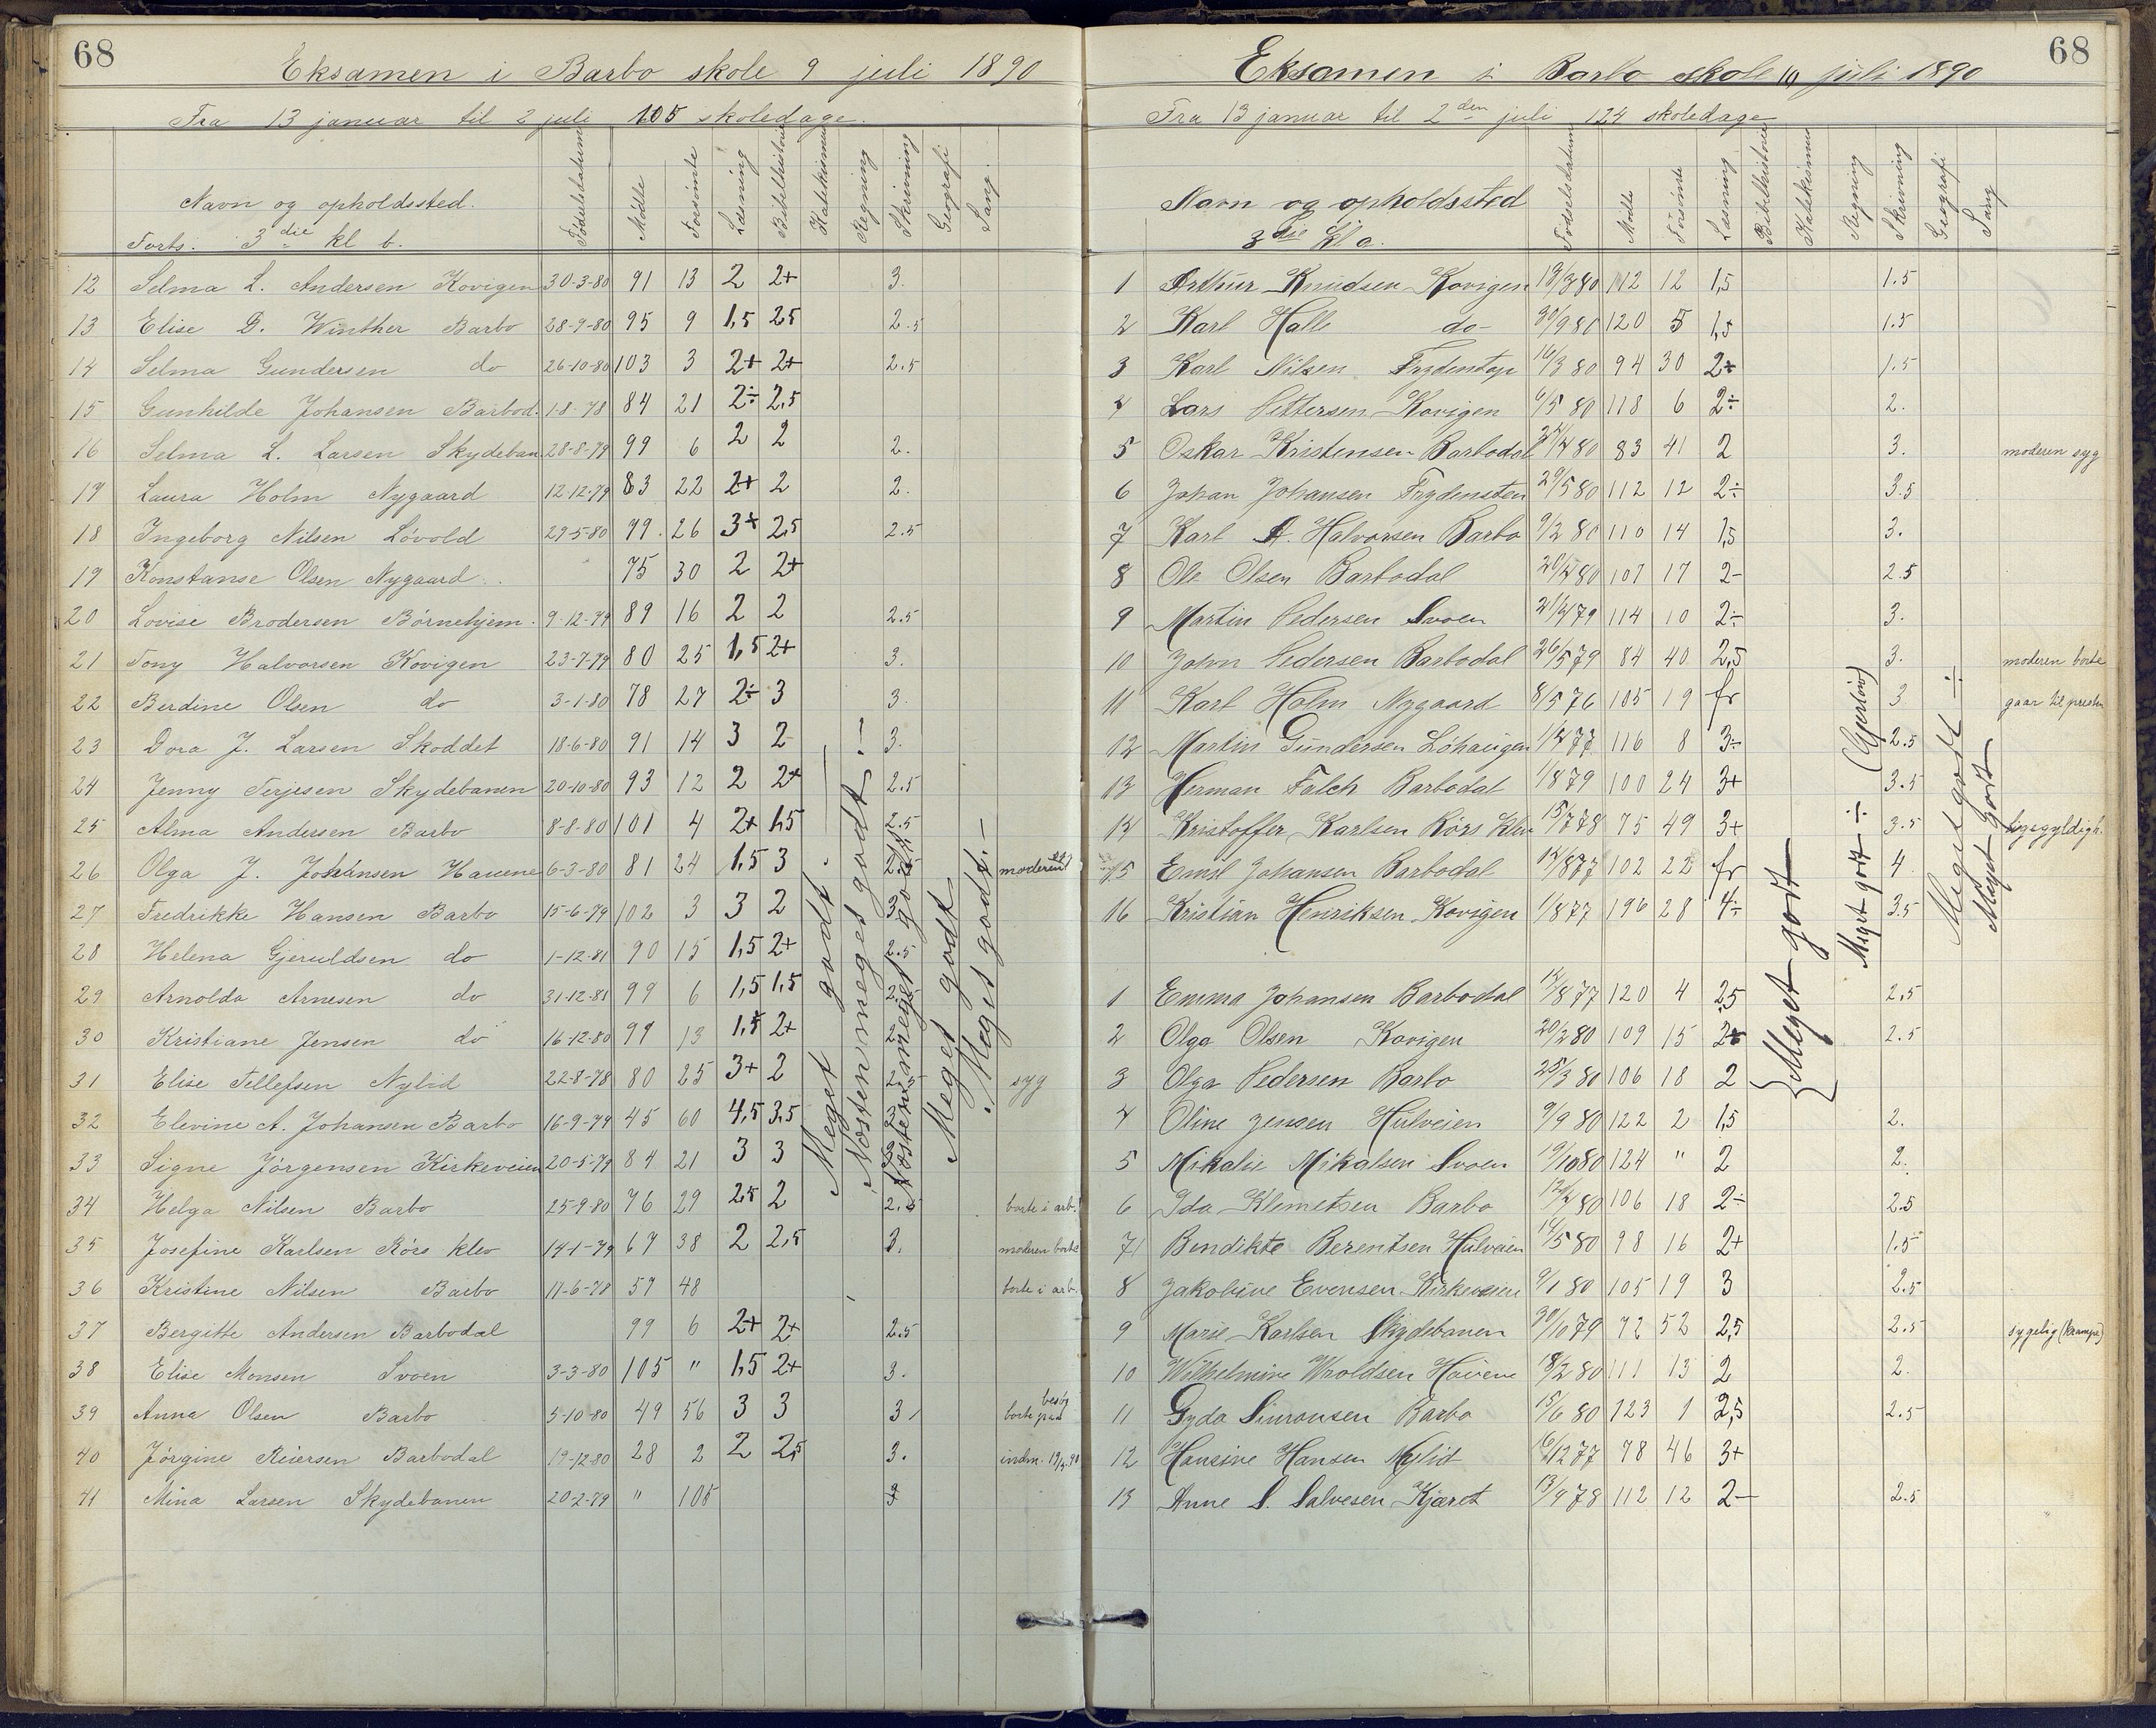 68
Eksamen i Barbo skole 9 juli 1890
Fra 13 januar til 2 juli 105 skoledage.
Navn og opholdssted.
Forts. 3die kl b.
Födselsdatum Mödte Forsömte Læsning Bibelhistorie Katekismus Regning Skrivning Geografi Sang.
12 Selma L. Andersen Kovigen 30-3-80 91 13 2 2+ 3.
13 Elise D. Winther Barbo 28-9-80 95 9 1,5 25 2.5
14 Selma Gundersen do 26-10-80 103 3 2+ 2+ 2.5
15 Gunhilde Johansen Barbod. 1-8-78 84 21 2÷ 2,5
16 Selma L. Larsen Skydeban. 28-8-79 99 6 2 2 2.
17 Laura Holm Nygaard 12-12-79 83 22 2+ 2 2.
18 Ingeborg Nilsen Lóvold 29-5-80 79. 26 3+ 2,5 2.5
19 Konstanse Olsen Nygaard 75 30 2 2+
20 Lovise Brodersen Börnehjem. 9-12-79 89 16 2 2 2.5
21 Tony Halvorsen Kovigen 23-7-79 80 25 1,5 2+ 3.
22 Berdine Olsen do 3-1-80 78 27 2÷ 3 3.
23 Dora J. Larsen Skoddet 18-6-80 91 14 3 2 3.
24 Jenny Terjesen Skydebanen 20-10-80 93 12 2 2+ 2.5
25 Alma Andersen Barbo 8-8-80 101 4 2+ 1,5 2.5
26 Olga J. Johánsen Hauene 6-3-80 81 24 1,5 3 moderen
27 Fredrikke Hansen Barbo 15-6-79 102 3 3 2 3
28 Helena Gjeruldsen do 1-12-81 90 15 1,5 2+ 2.5
29 Arnolda Arnesen do 31-12-81 99 6 1,5 1,5
30 Kristiane Jensen do 16-12-80 91 13 1,5 2+
31 Elise Tellefsen Nylid 22-8-78 80 25 3+ 2 2.5 syg
32 Elevine A. Johansen Barbo 16-9-79 45 60 4,5 3,5
33 Signe Jörgensen Kirkeveien 20-5-79 84 21 3 3
34 Helga Nilsen Barbo 25-9-80 76 29 25 2 2.5 borte i arb.
35 Josefine Karlsen Rörs klev 14-1-79 67 38 2 2,5 3. moderen borte
36 Kristine Nilsen Barbo 11-6-78 57 48 borte i arb.
37 Bergitte Andersen Barbodal 99 6 2+ 2+ 2.5
38 Elise Monsen Svoen 3-3-80 105 " 1,5 2+ 3.
39 Anna Olsen Barbo 5-10-80 49 56 3 3 3 borte paa besög
40 Jörgine Reiersen Barbodal 19-12-80 28 2 2 2,5 3. indm.
41 Mina Larsen Skydebanen 20-2-79 " 105 3
Meget godt.
Næsten meget godt!
Næsten meget godt
Meget godt
Meget godt.
68
Eksamen i Barbo skole 10 juli 1890
Fra 13 januar til 2den juli 124 skoledage
Navn og opholdssted
3die kl a.
Fodselsdatum Mödte Forsömte Læsning Bibelhistorie Katekismus Regning Skrivning Geografi Sang
1 Arthur Knudsen Kovigen 13/3 80 112 12 1,5 1.5
2 Karl Halle do 30/9 80 120 5 1,5 1.5
3 Karl Nilsen Frydentop 16/3 80 94 30 2+ 1.5
4 Lars Pettersen Kovigen 6/5 80 118 6 2÷ 2.
5 Oskar Kristensen Barbodal 24/4 80 83 41 2 3. moderen syg
6 Johan Johansen Frydensten 29/5 80 112 12 2÷ 3.5
7 Karl A. Halvorsen Barbo 9/2 80 110 14 1,5 3.
8 Ole Olsen Barbodal 20/4 80 107 17 2- 2.5
9 Martin Pedersen Svoen 21/4 79 114 10 2÷ 3.
10 John Pedersen Barbodal 26/5 79 84 40 2,5 3. moderen borte
11 Karl Holm Nygaard 8/5 76 105 19 fr 3 gaar til presten
12 Martin Gundersen Löhaugen 1/4 77 116 8 3÷ 2.5
13 Herman Falch Barbodal 1/8 79 100 24 3+ 3.5
14 Kristoffer Karlsen Rörs klev 15/7 78 75 49 3+ 3.5 ligegyldigh.
15 Emil Johansen Barbodal 14/8 77 102 22 fr 4
16 Kristian Henriksen Kovigen 1/8 77 196 28 4÷ 3.5
1 Emma Johansen Barbodal 14/8 77 120 4 2,5 2.5
2 Olga Olsen Kovigen 20/2 80 109 15 2+ 2.5
3 Olga Pedersen Barbo 25/3 80 106 18 2
4 Oline Jensen Hulveien 9/9 80 122 2 1,5 2.
5 Mikalie Mikalsen Svoen 19/10 80 124 " 2 2.
6 Ida Klemetsen Barbo 12/4 80 106 18 2÷ 2.5
7 Bendikte Berentsen Hulveien 14/5 80 98 16 2+ 1.5
8 Jakobine Evensen Kirkeveien 9/1 80 105 19 3 2.5
9 Marie Karlsen Skydebanen 30/10 79 72 52 2,5 2.5 sygelig (krampe)
10 Wilhelmine Wroldsen Havene 18/2 80 111 13 2 2.
11 Gyda Simonsen Barbo 15/6 80 123 1 2,5 2.5
12 Hansine Hansen Nylid 16/12 77 78 46 3+
13 Anne S. Salvesen Kjæret 13/9 78 112 12 2- 2.5
Meget godt
Meget godt ÷ (Gjerlöv)
Meget godt ÷
Meget godt